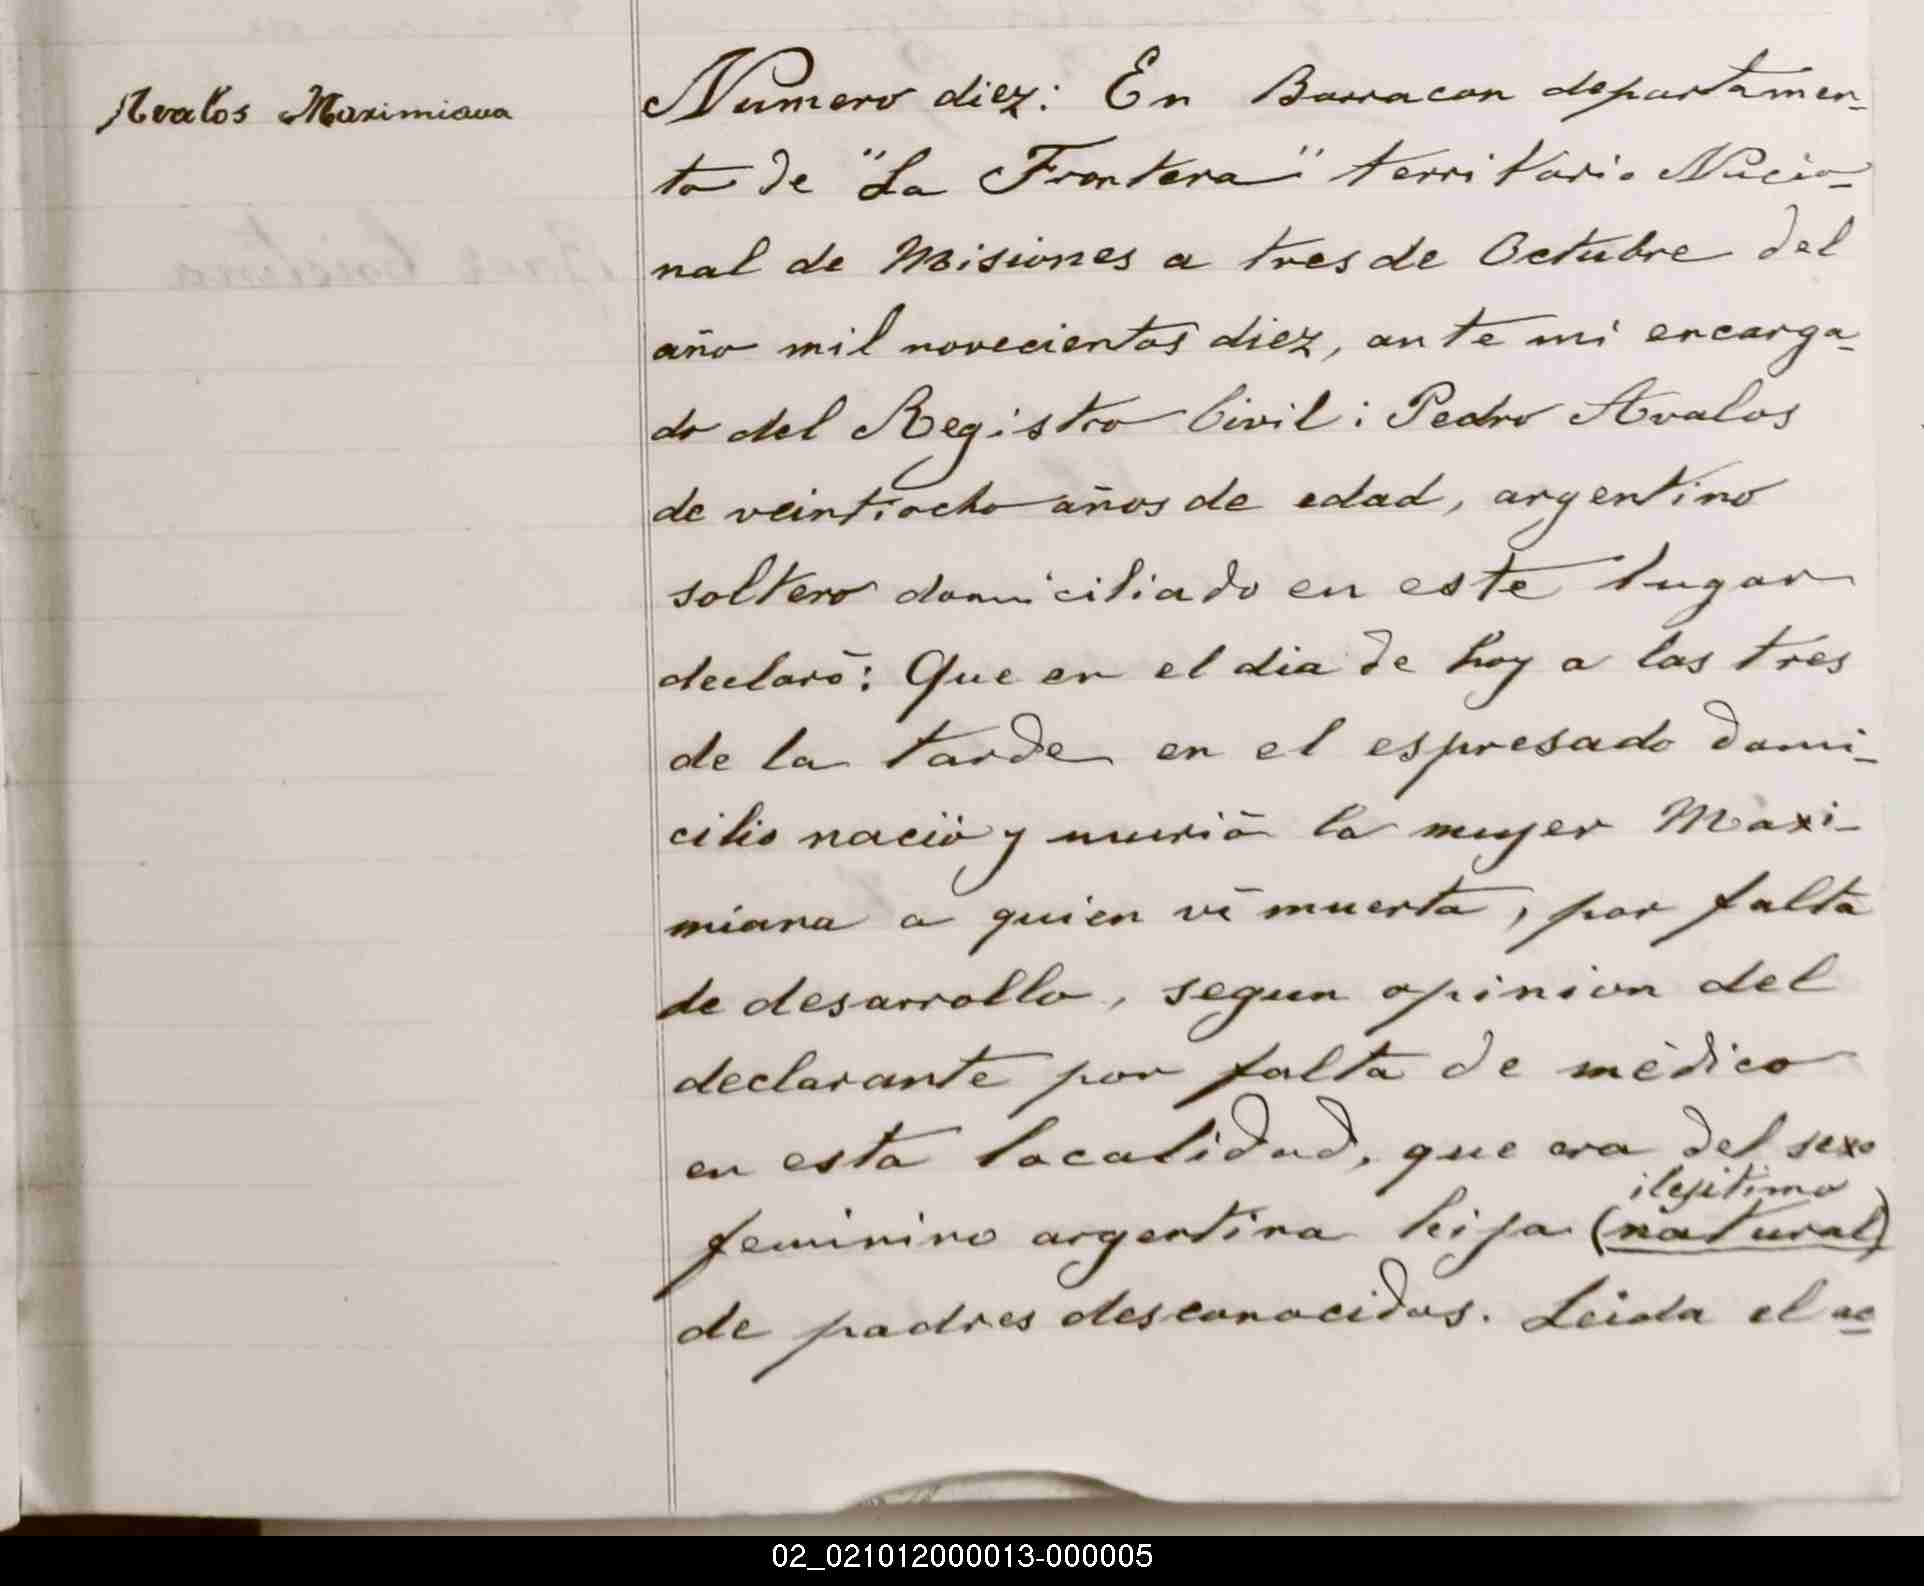 Avalos Maximiana
Numero diez: En Barracon departamen-
to de "La Frontera" territorio Nacio-
nal de Misiones a tres de Octubre del
año mil novecientos diez, ante mi encarga-
do del Registro Civil: Pedro Avalos
de veintiocho años de edad, argentino
soltero domiciliado en este lugar
declaró: Que en el dia de hoy a las tres
de la tarde en el espresado domi-
cilio nació y murió la mujer Maxi-
miana a quien ví muerta, por falta
de desarrollo, segun opinion del
declarante por falta de médico
en esta localidad, que era del sexo
ilejitima
feminino argentina hija (natural)
de padres desconocidos. Leida el ac
02_021012000013-000005